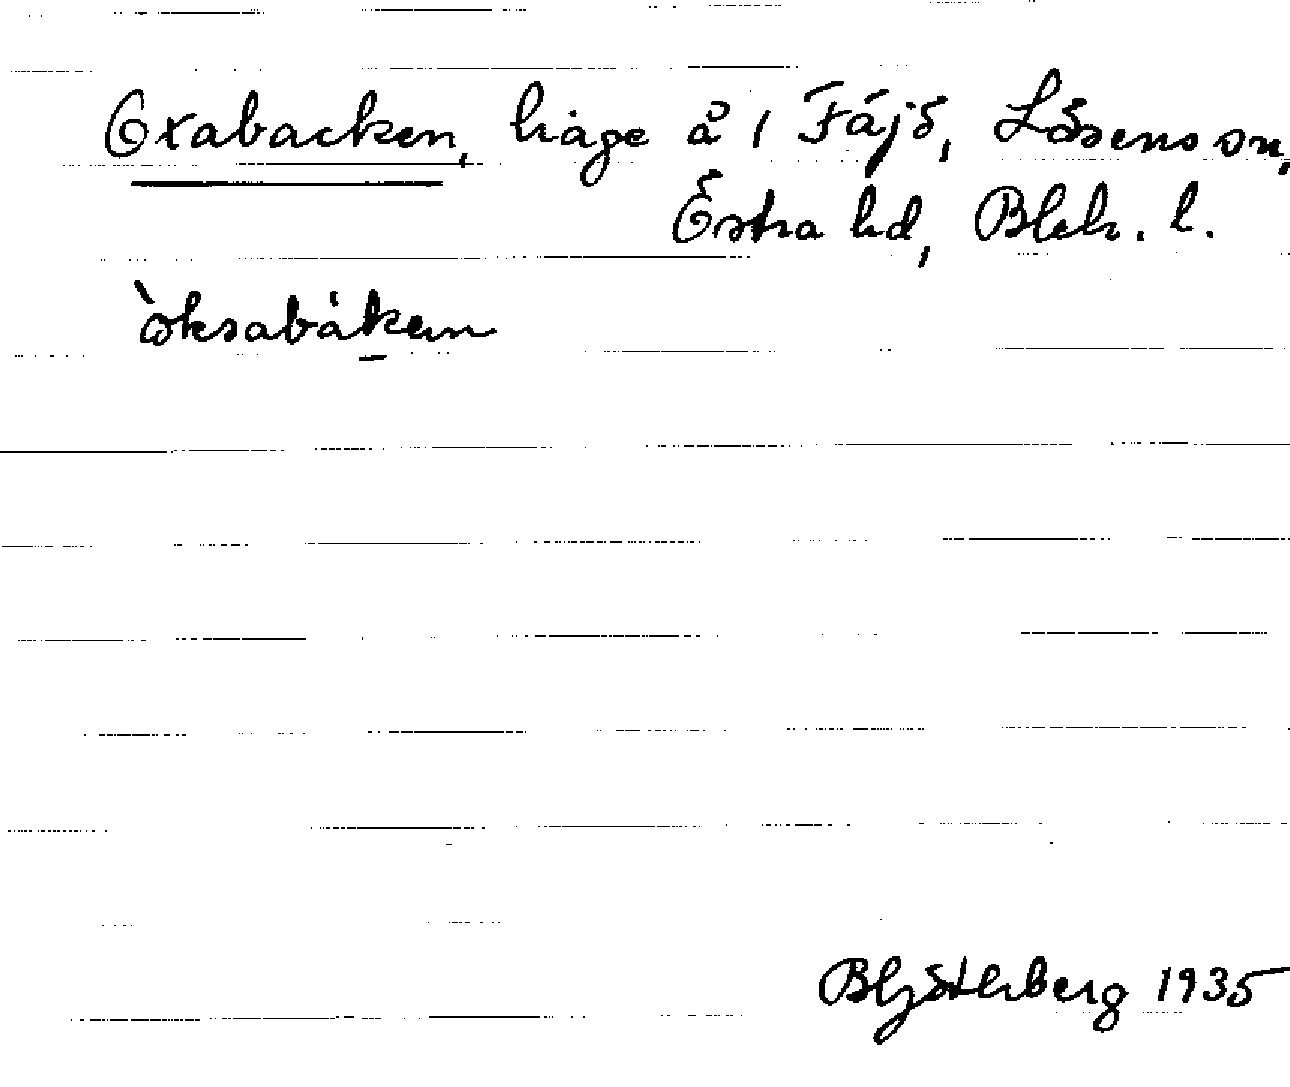 Oxabacken, hage å 1 Fäjö, Lösens sn,
Östra hd, Blek. l.
òksabákan
B Ljötterberg 1935